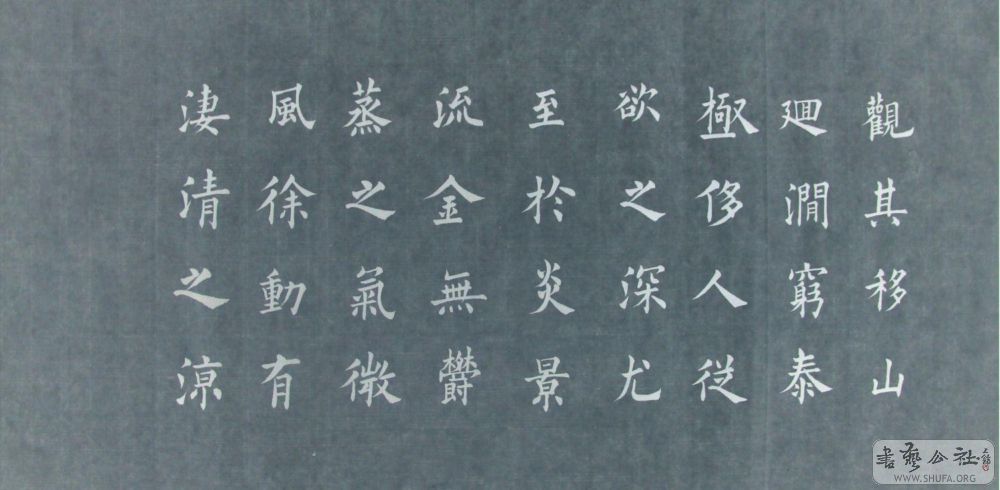 觀其移山
廻澗窮泰
極侈人從
欲之深尤
至於炎景
流金無欝
蒸之氣微
風徐動有
淒清之涼
書藝公社
WWW.SHUFA.ORG